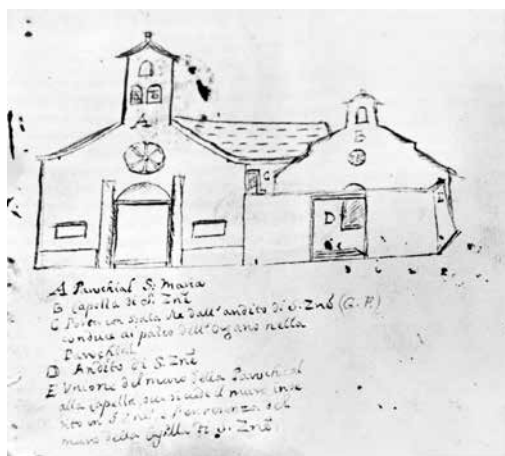 A
B
C
D
E
A Parochial S. Maria
B Capella di S. Znē
C Porta con scala che dall'andito di S. Znē (G. P.)
conduce al palco dell'Organo nella
Parochial
D Andito di S. Znē
E Unione del muro della Parochial
alla capella, ove si vede il muro
in S. Znē, e l'
muro della Capella di S. Znē.